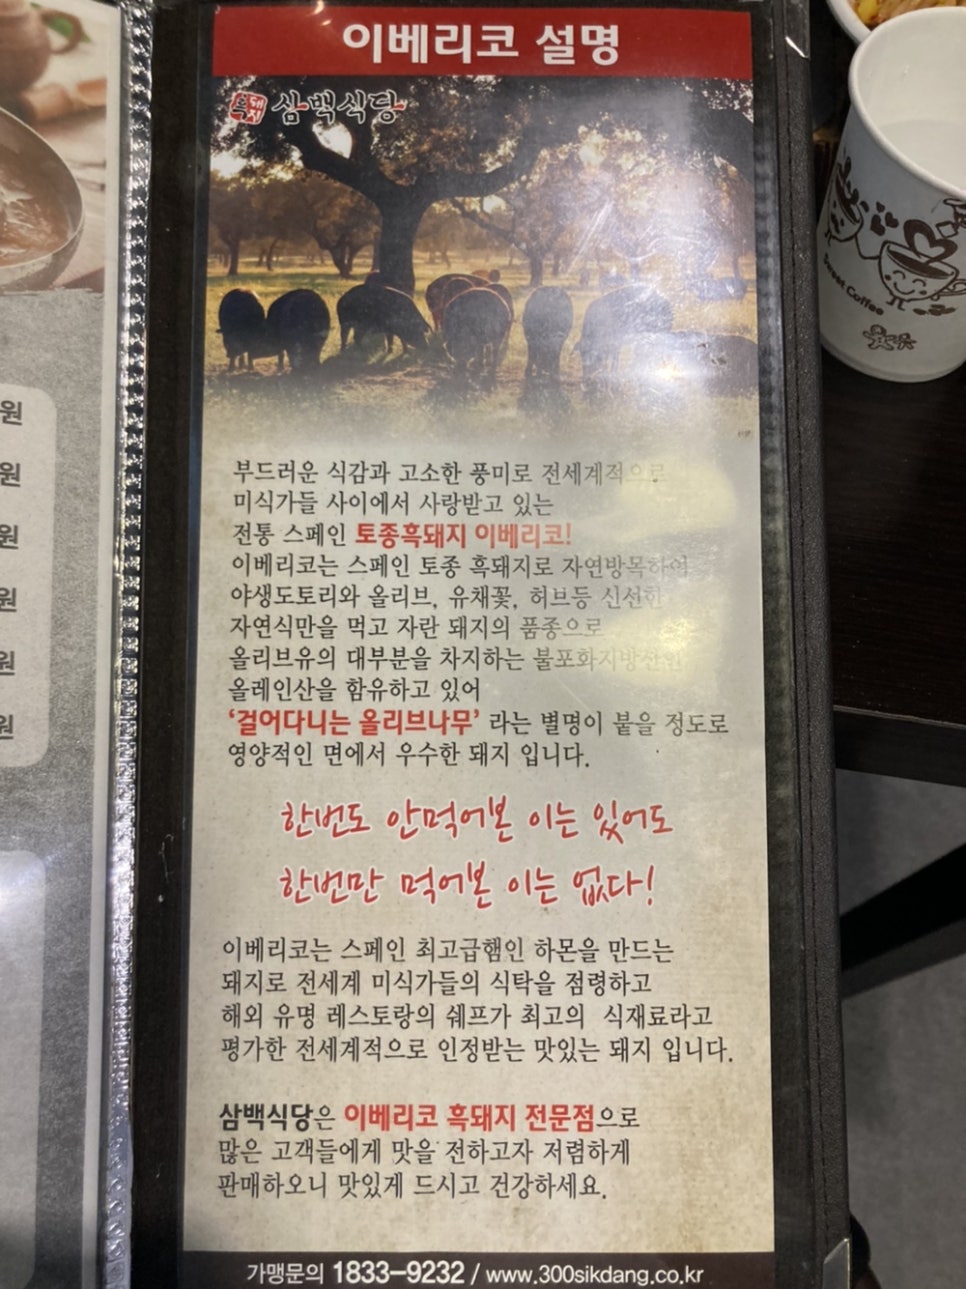 이베리코 설명
흑돼지 삼백식당
부드러운 식감과 고소한 풍미로 전세계적으로
미식가들 사이에서 사랑받고 있는
전통 스페인 토종흑돼지 이베리코!
이베리코는 스페인 토종 흑돼지로 자연방목하여
야생도토리와 올리브, 유채꽃, 허브등 신선한
자연식만을 먹고 자란 돼지의 품종으로
올리브유의 대부분을 차지하는 불포화지방산인
올레인산을 함유하고 있어
‘걸어다니는 올리브나무’ 라는 별명이 붙을 정도로
영양적인 면에서 우수한 돼지 입니다.
한번도 안먹어본 이는 있어도
한번만 먹어본 이는 없다!
이베리코는 스페인 최고급햄인 하몬을 만드는
돼지로 전세계 미식가들의 식탁을 점령하고
해외 유명 레스토랑의 쉐프가 최고의 식재료라고
평가한 전세계적으로 인정받는 맛있는 돼지 입니다.
삼백식당은 이베리코 흑돼지 전문점으로
많은 고객들에게 맛을 전하고자 저렴하게
판매하오니 맛있게 드시고 건강하세요.
가맹문의 1833-9232 / www.300sikdang.co.kr
원
원
원
원
원
원
Sweet Coffee